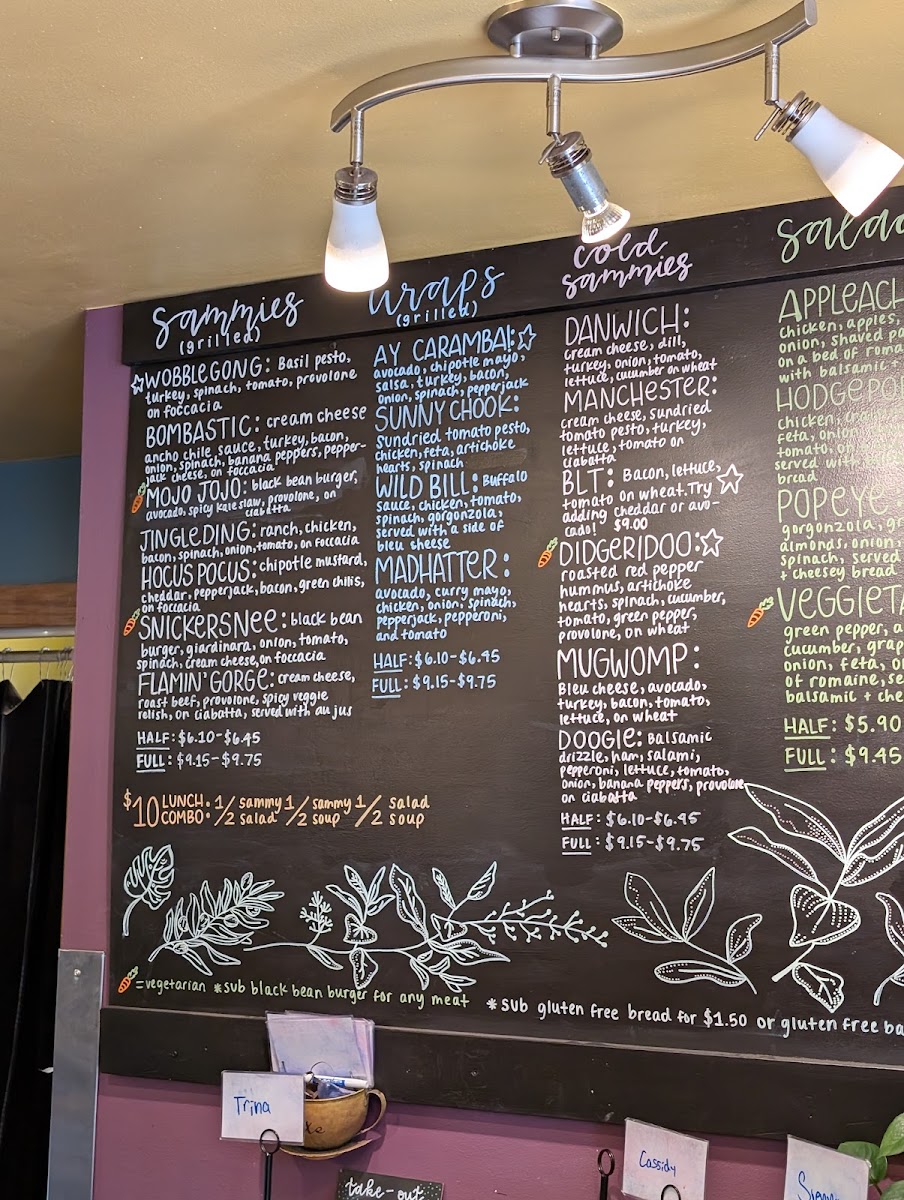 Sammies
(grilled)
☆WOBBLEGONG: Basil pesto,
turkey, spinach, tomato, provolone
on foccacia
BOMBASTIC: cream cheese
ancho chile sauce, turkey, bacon,
onion, spinach, banana peppers, pepper-
jack cheese, on foccacia
MOJO JOJO: black bean burger,
avocado, spicy kale slaw, provolone, on
ciabatta
JINGLEDING: ranch, chicken,
bacon, spinach, onion, tomato, on foccacia
HOCUS POCUS: chipotle mustard,
cheddar, pepperjack, bacon, green chilis,
on foccacia
SNICKERSNEE: black bean
burger, giardinara, onion, tomato,
spinach, cream cheese, on foccacia
FLAMIN' GORGE: cream cheese,
roast beef, provolone, spicy veggie
relish, on ciabatta, served with au jus
HALF: $6.10-$6.45
FULL: $9.15-$9.75
$10 LUNCH COMBO: 1/2 sammy 1/2 salad 1/2 sammy 1/2 soup 1/2 salad 1/2 soup
wraps
(grilled)
AY CARAMBA!:☆
avocado, chipotle mayo,
salsa, turkey, bacon,
onion, spinach, pepperjack
SUNNY CHOOK:
Sundried tomato pesto,
chicken, feta, artichoke
hearts, spinach
WILD BILL: Buffalo
sauce, chicken, tomato,
spinach, gorgonzola,
served with a side of
bleu cheese
MADHATTER:
avocado, curry mayo,
chicken, onion, spinach,
pepperjack, pepperoni,
and tomato
HALF: $6.10-$6.45
FULL: $9.15-$9.75
cold
sammies
DANWICH:
cream cheese, dill,
turkey, onion, tomato,
lettuce, cucumber on wheat
MANCHESTER:
cream cheese, sundried
tomato pesto, turkey,
lettuce, tomato on
ciabatta
BLT: Bacon, lettuce,
tomato on wheat. Try ☆
adding cheddar or avo-
cado! $9.00
DIDGERIDOO:☆
roasted red pepper
hummus, artichoke
hearts, spinach, cucumber,
tomato, green pepper,
provolone, on wheat
MUGWOMP:
Bleu cheese, avocado,
turkey, bacon, tomato,
lettuce, on wheat
DOOGIE: Balsamic
drizzle, ham, salami,
pepperoni, lettuce, tomato,
onion, banana peppers, provolone
on ciabatta
HALF: $6.10-$6.45
FULL: $9.15-$9.75
Salad
APPLEACH
chicken, apples,
onion, shaved pa
on a bed of roma
with balsamic +
HODGEPO
chicken,
feta, onion
tomato, on
served with
bread
POPEYE
gorgonzola, gr
almonds, onion,
spinach, served
+ cheesey bread
VEGGIETA
green pepper, a
cucumber, grap
onion, feta, o
of romaine, se
balsamic + che
HALF: $5.90
FULL: $9.45
=vegetarian *sub black bean burger for any meat *sub gluten free bread for $1.50 or gluten free ba
Trina
Cassidy
take-out